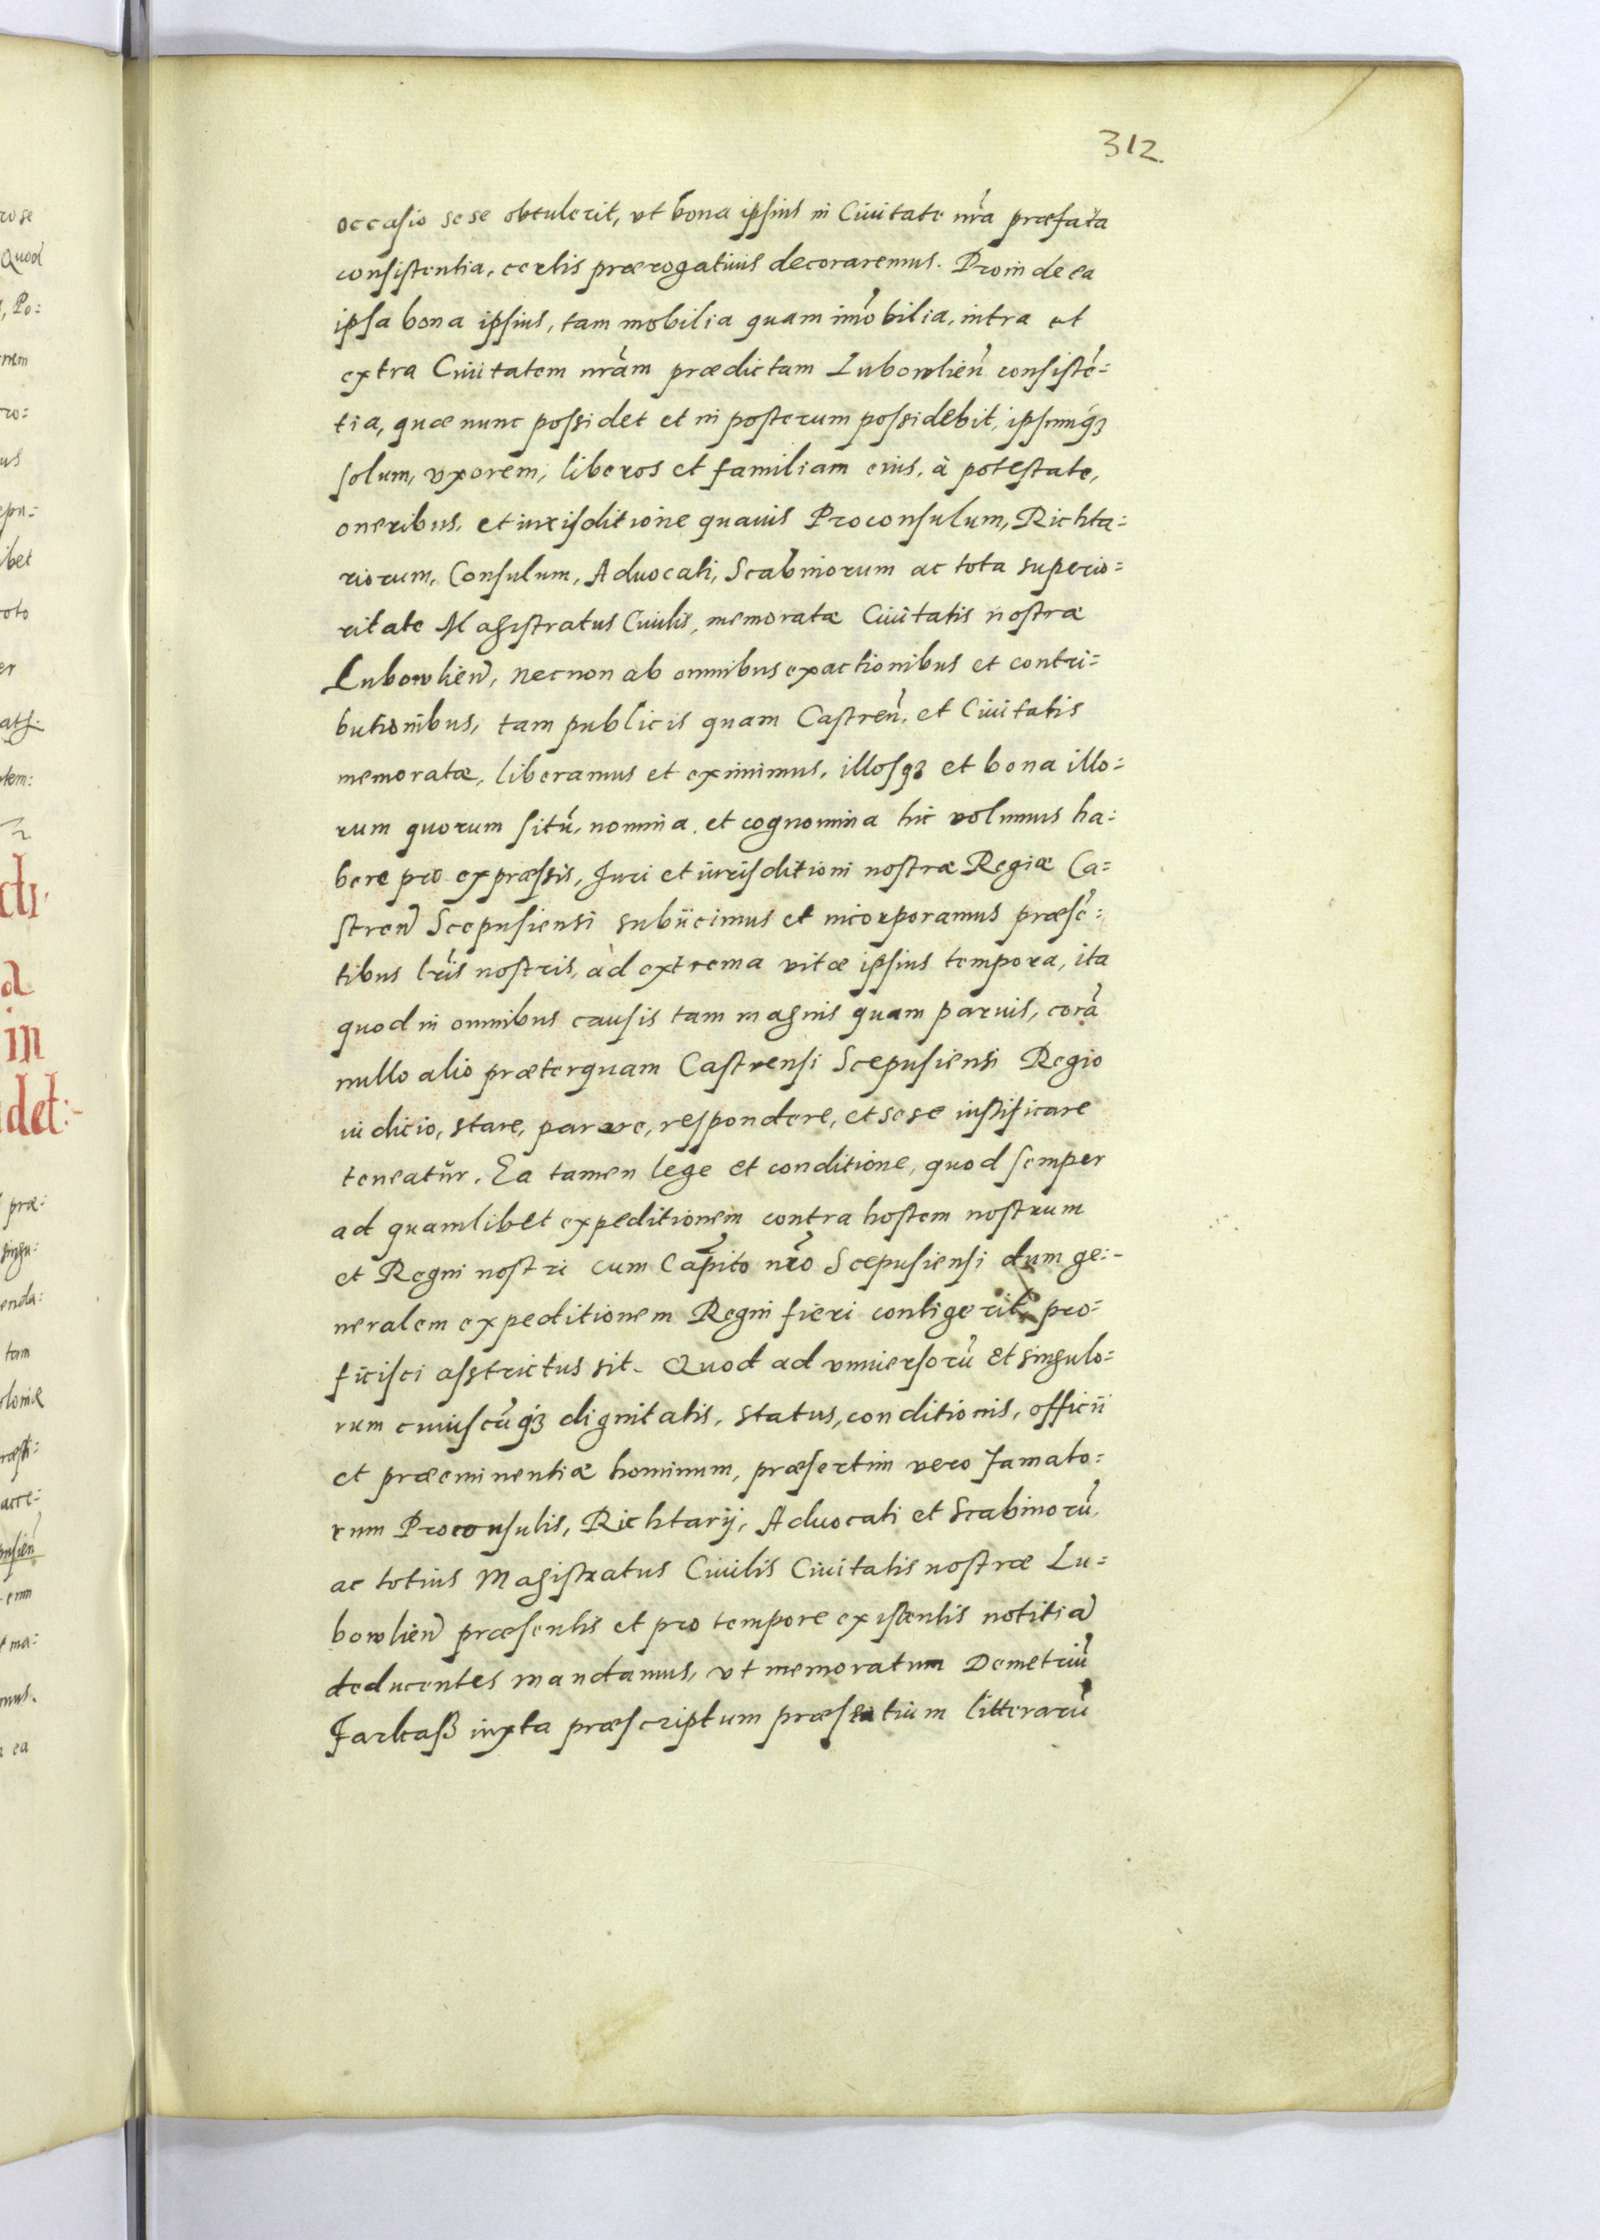 312.
occasio sese obtulerit, vt bona ipsius in Ciuitate nr̃a præfata
consistentia, certis prærogatiuis decoraremus. Proinde ea
ipsa bona ipsius, tam mobilia quam im̃obilia, intra et
extra Ciuitatem nr̃am prædictam Lubowlieñ consistẽ=
tia, quæ nunc possidet et in posterum possidebit, ipsumq3
solum, vxorem, liberos et familiam eius, à potestate,
oneribus, et iurisditione quauis Proconsulum, Richta=
riorum, Consulum, Aduocati, Scabinorum ac tota superio=
ritate Magistratus Ciuilis, memoratæ Ciuitatis nostræ
Lubowlieñ, necnon ab omnibus exactionibus et contri=
butionibus, tam publicis quam Castreñ, et Ciuitatis
memoratæ, liberamus et eximimus, illosq3 et bona illo=
rum quorum sitũ, nomina, et cognomina hic volumus ha=
bere pro expræssis, Juri et iurisditioni nostræ Regiæ Ca=
streñ Scepusiensi subiicimus et incorporamus præsẽ=
tibus lr̃is nostris, ad extrema vitæ ipsius tempora, ita
quod in omnibus causis tam magnis quam paruis, corã
nullo alio præterquam Castrensi Scepusiensi Regio
iudicio, stare, parere, respondere, et sese iustificare
teneatur. Ea tamen lege et conditione, quod semper
ad quamlibet expeditionem contra hostem nostrum
et Regni nostri cum Cap̃ito nr̃o Scepusiensi dum ge:-
neralem expeditionem Regni fieri contigerit, pro=
ficisci asstrictus sit. Quod ad vniuersorũ et singulo=
rum cuiuscũq3 dignitatis, status, conditionis, officii
et præeminentiæ hominum, præsertim vero famato=
rum Proconsulis, Richtarij, Aduocati et Scabinorũ,
ac totius Magistratus Ciuilis Ciuitatis nostræ Lu=
bowlieñ præsentis et pro tempore existentis notitiã
deducentes mandamus, vt memoratum Demetriũ
Jarhaß iuxta præscriptum præsentium litterarũ